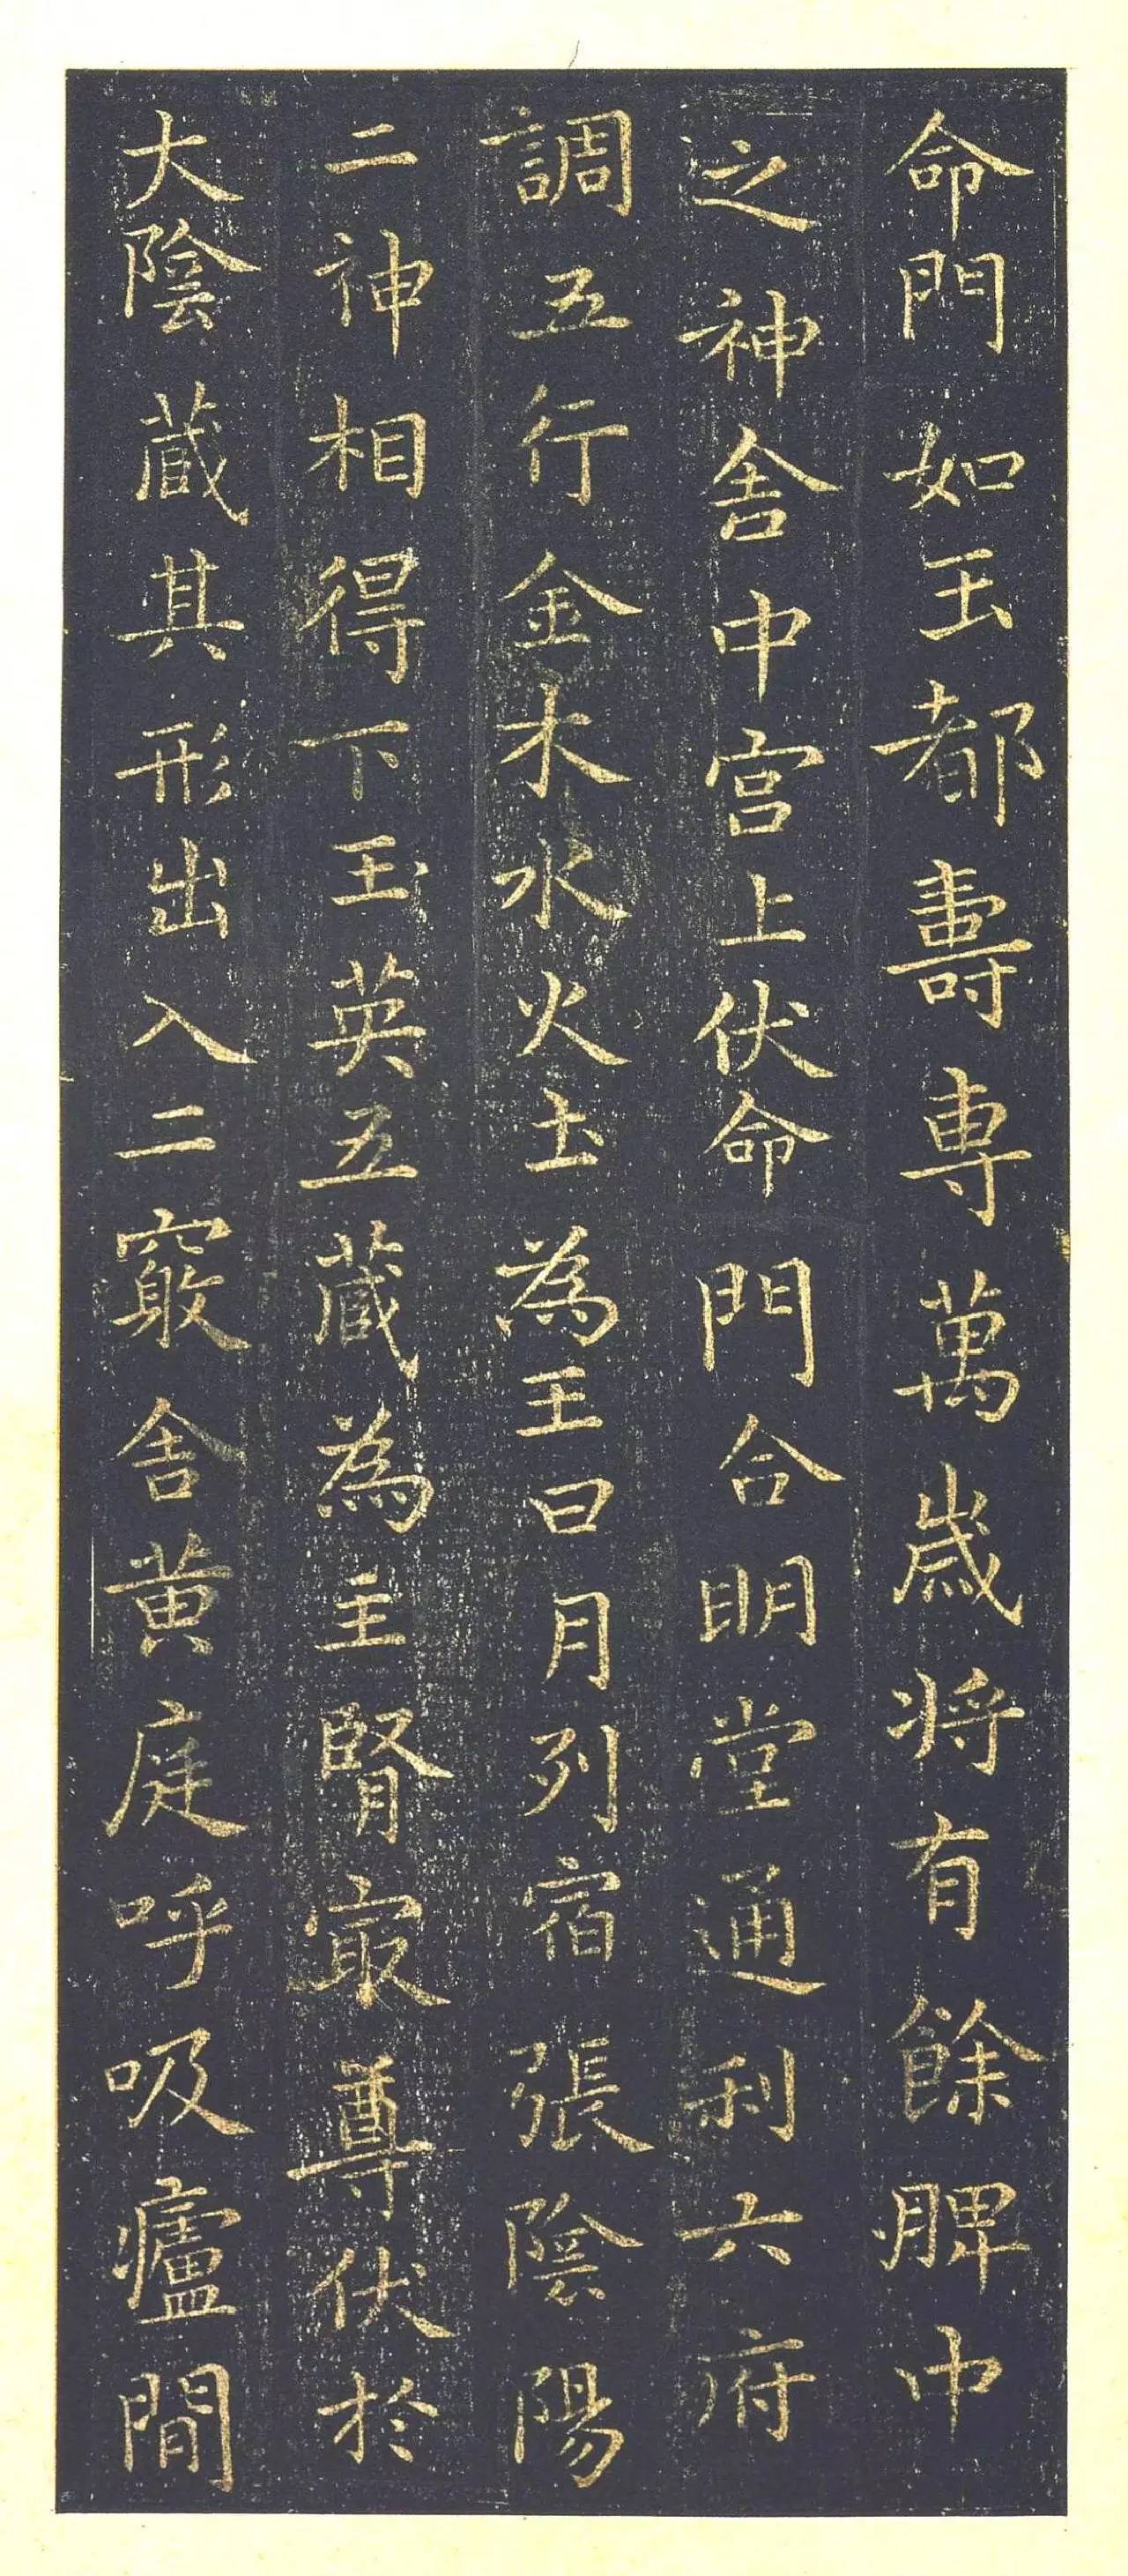 命門如玉都壽專萬歲將有餘脾中
之神舍中宮上伏命門合明堂通利六府
調五行金木水火土為王日月列宿張陰陽
二神相得下玉英五藏為主腎最尊伏於
大陰藏其形出入二竅舍黃庭呼吸廬間